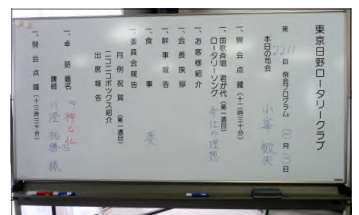 東京日野ロータリークラブ
第2211回 例会プログラム 8月3日
本日の司会 小峯 敬夫
一、開会点鐘(十二時三十分)
一、国歌斉唱 君が代(第一週目)
ロータリーソング 奉仕の理想
一、お客様紹介
一、会長挨拶
一、幹事報告
一、食事
一、委員会報告
月例祝賀(第一週目)
ニコニコボックス紹介
出席報告
一、卓話 題名
講師 様
一、閉会点鐘(十三時三十分)